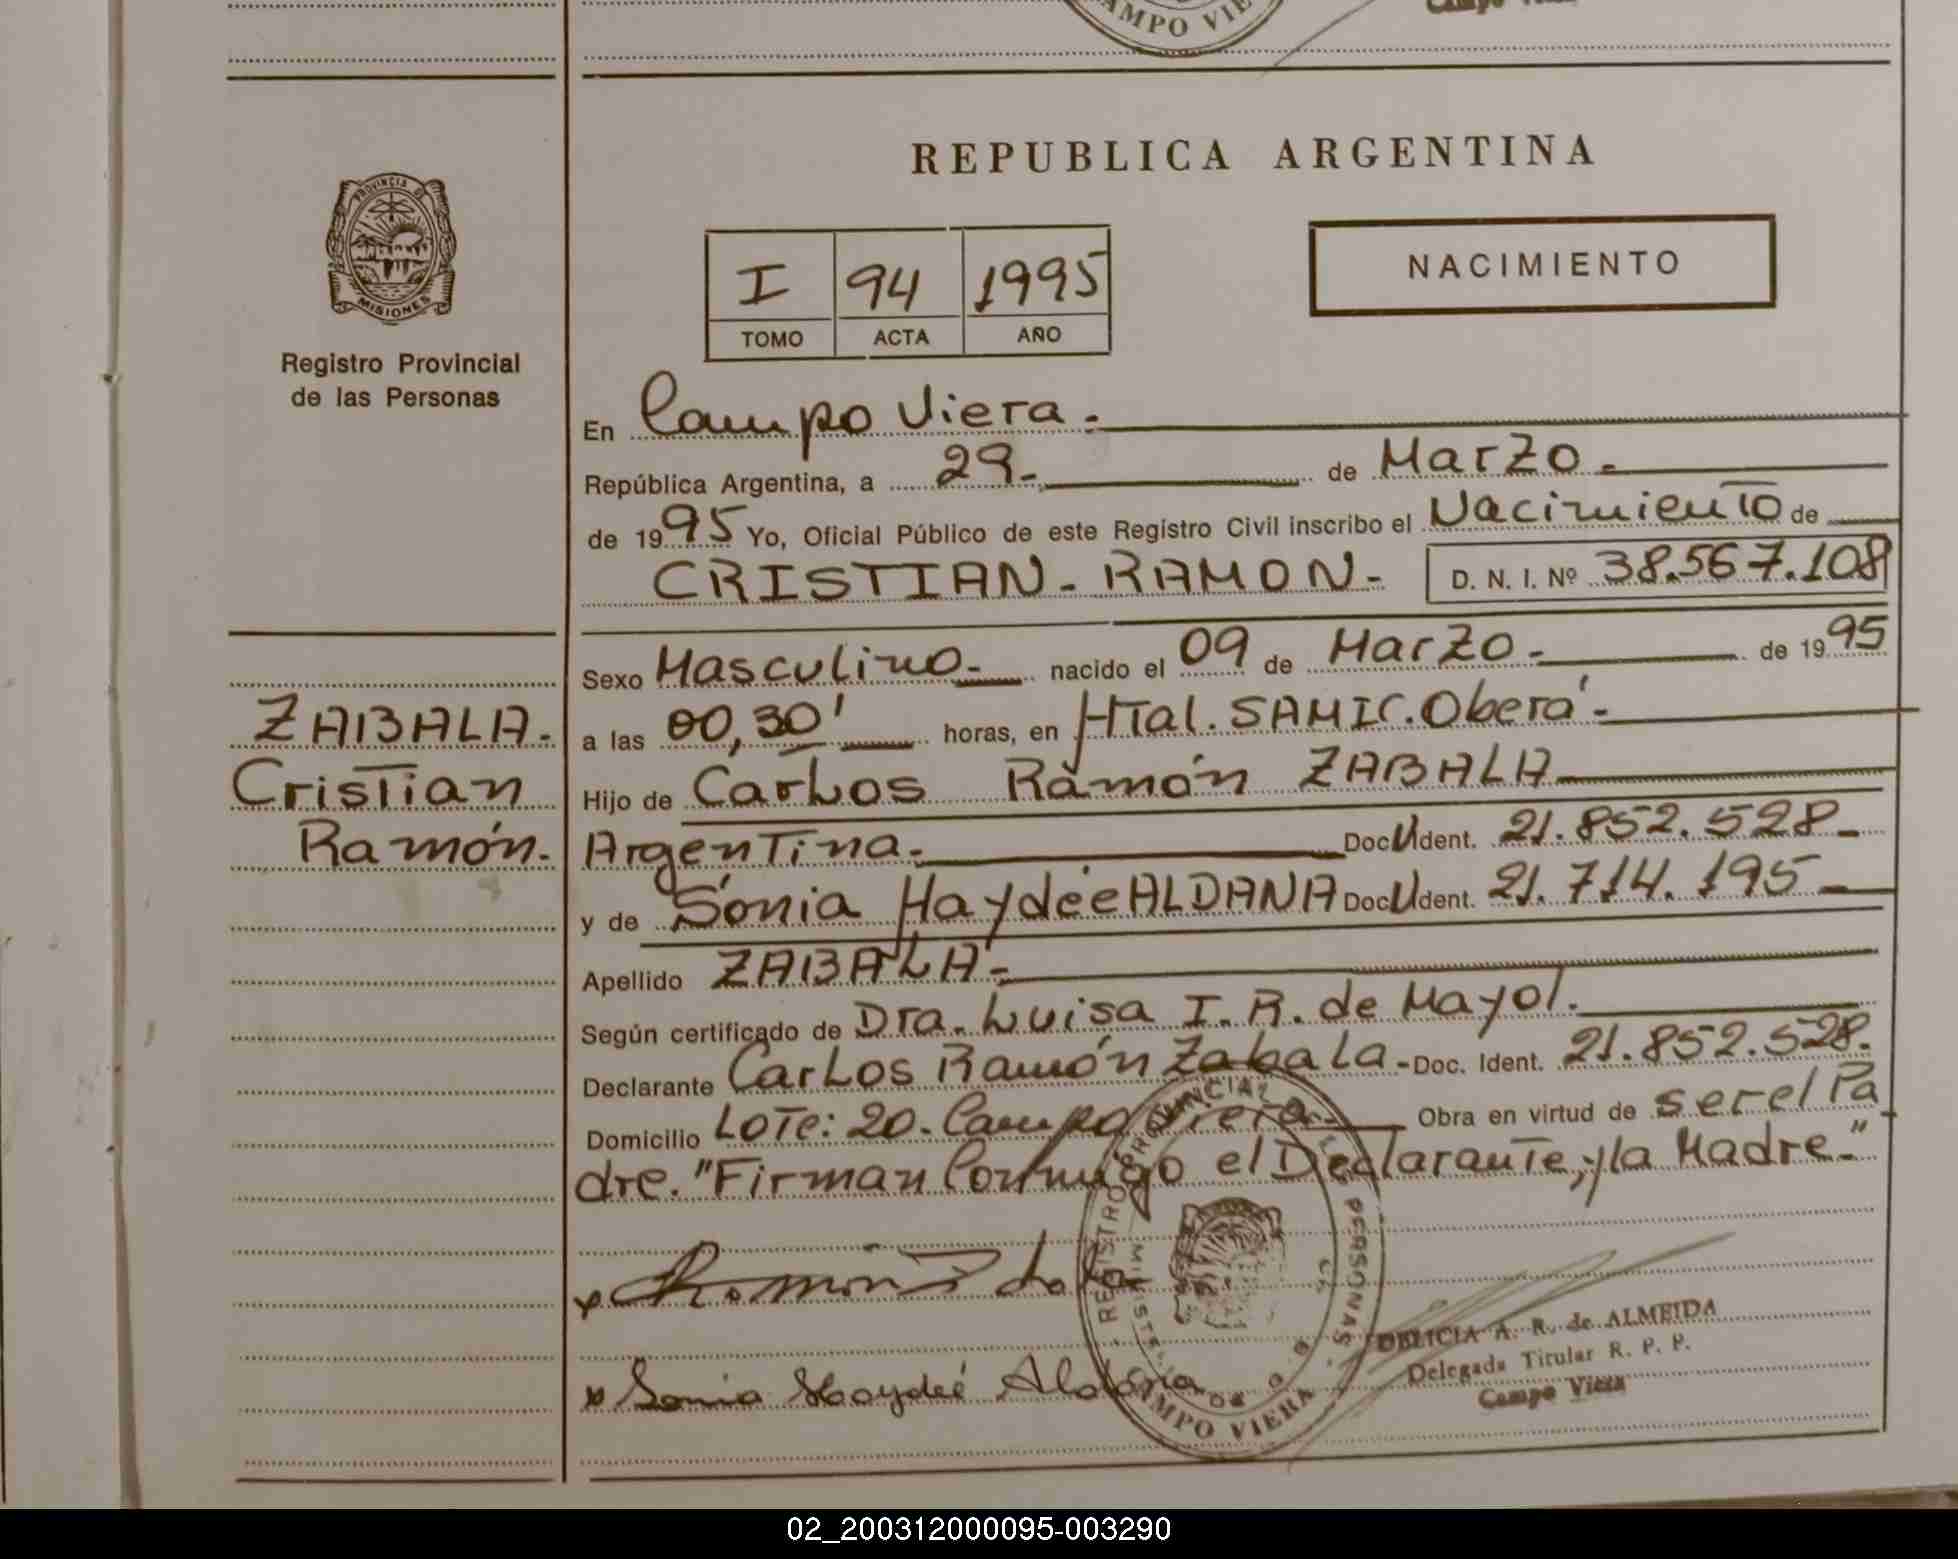 CAMPO VIE
Campo Viera
REPUBLICA ARGENTINA
PROVINCIA DE
MISIONES
Registro Provincial
de las Personas
I 94 1995
TOMO ACTA AÑO
NACIMIENTO
En Campo Viera.-
República Argentina, a 29.- de Marzo.-
de 1995 Yo, Oficial Público de este Registro Civil inscribo el Nacimiento de
CRISTIAN - RAMON - D. N. I. Nº 38.567.108
Sexo Masculino.- nacido el 09 de Marzo.- de 1995
a las 00,30' horas, en Htal. SAMIC. Oberá.-
Hijo de Carlos Ramón ZABALA
Argentina.- Doc U Ident. 21.852.528.-
y de Sonia Haydée ALDANA Doc U Ident. 21.714.195.-
Apellido ZABALA.-
Según certificado de Dra. Luisa I. R. de Mayol.
Declarante Carlos Ramón Zabala.- Doc. Ident. 21.852.528.
Domicilio Lote: 20. Campo Viera.- Obra en virtud de ser el Pa
dre. "Firman Conmigo el Declarante, y la Madre."
ZABALA.-
Cristian
Ramón.-
x Sonia Haydeé Aldana
REGISTRO PROVINCIAL DE LAS PERSONAS
MISIONES
CAMPO VIERA
DELICIA A. R. de ALMEIDA
Delegada Titular R. P. P.
Campo Viera
02_200312000095-003290